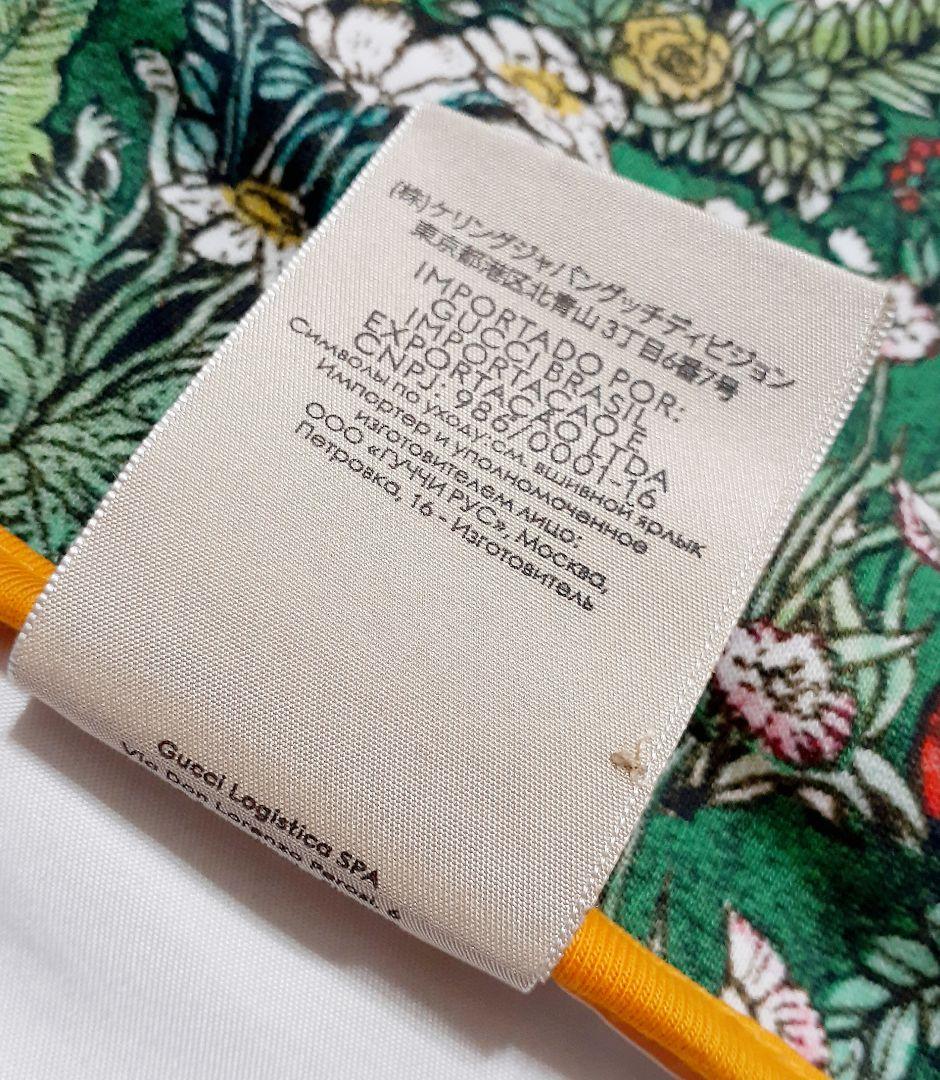 (株)ケリングジャパングッチディビジョン
東京都港区北青山3丁目6番7号
IMPORTADO POR:
GUCCI BRASIL
IMPORTACAO E
EXPORTACAO LTDA
CNPJ: 986/0001-16
Символы по уходу:см. вшивной ярлык
Импортер и уполномоченное
изготовителем лицо:
ООО «ГУЧЧИ РУС», Москва,
Петровка, 16 - Изготовитель
Gucci Logistica SPA
Via Don Lorenzo Perosi, 6